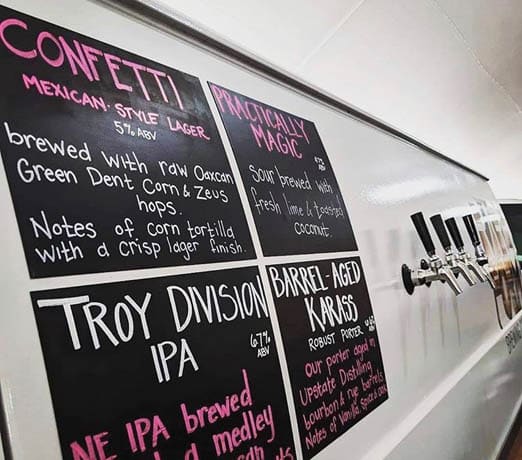 CONFETTI
MEXICAN-STYLE LAGER
5% ABV
brewed with raw Oaxcan
Green Dent Corn & Zeus
hops.
Notes of corn tortilla
with a crisp lager finish.
PRACTICALLY
MAGIC
Sour brewed with
fresh lime & toasted
coconut.
TROY DIVISION
IPA
6.7%
ABV
NE IPA brewed
medley
BARREL-AGED
KARASS
ROBUST PORTER
ABV
Our porter aged in
Upstate Distilling
bourbon & rye barrels
Notes of Vanilla, Spice &